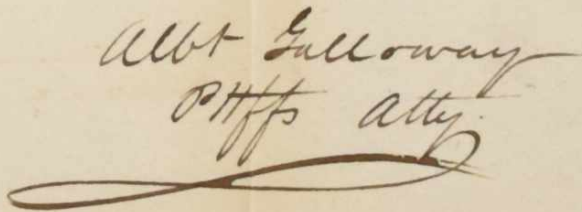 Albt Galloway
Plffs Atty.